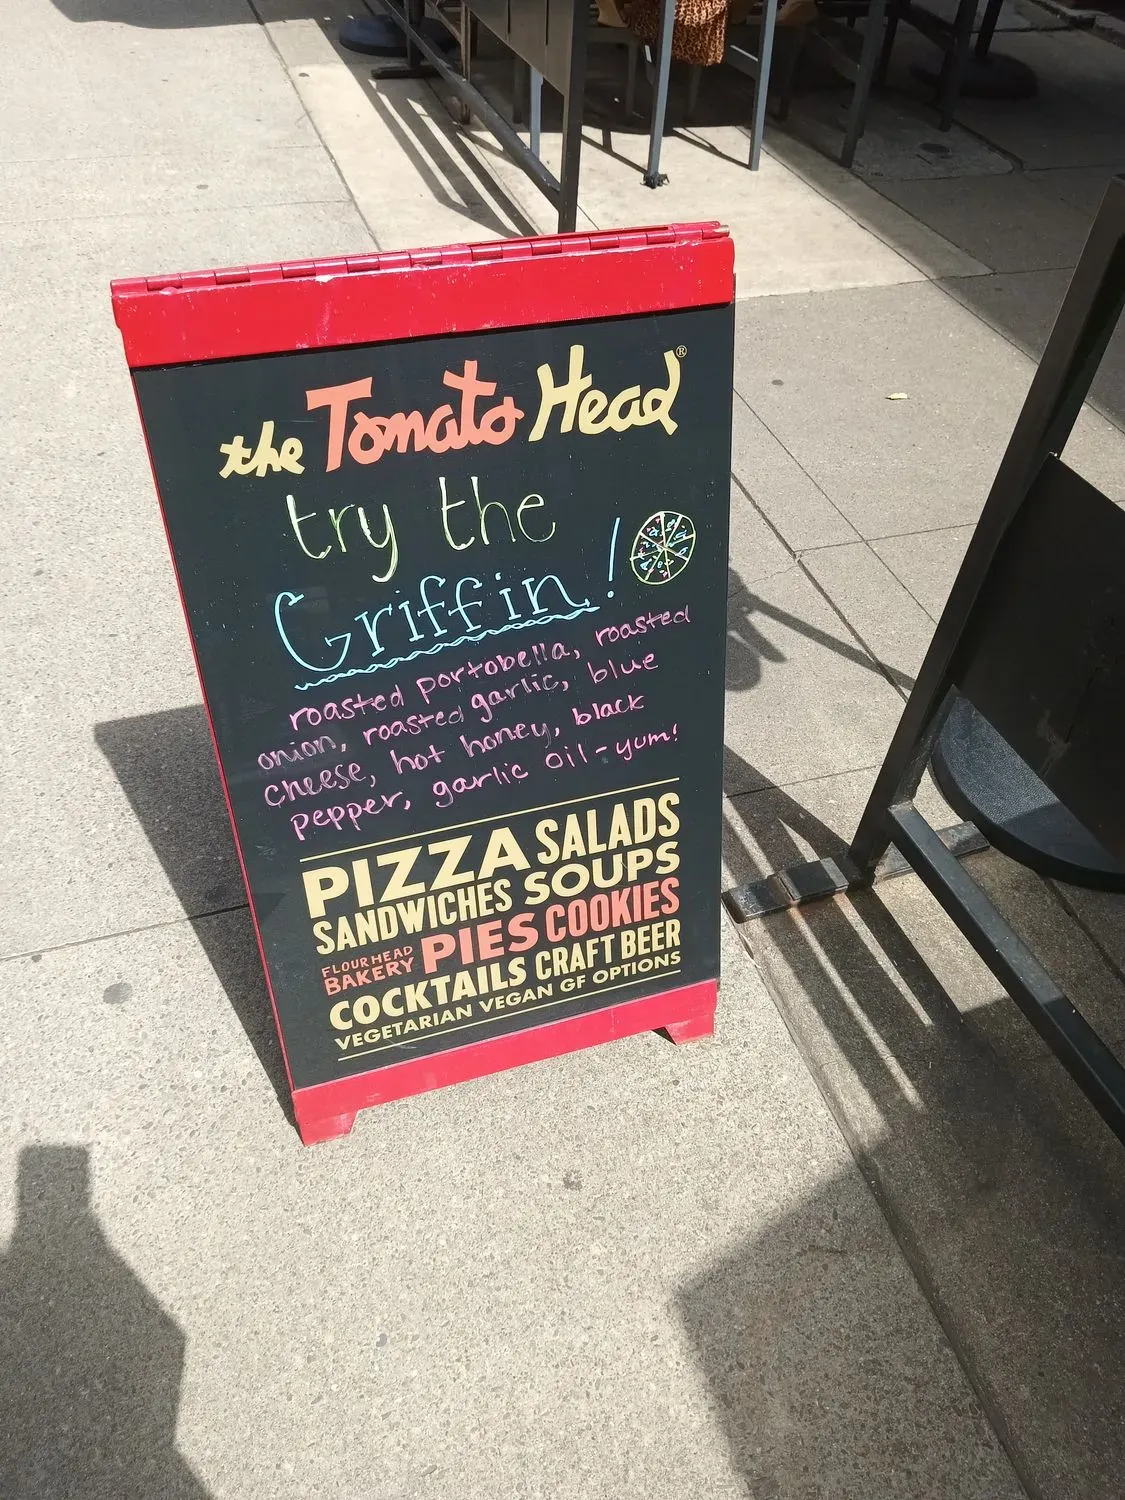 the Tomato Head®
try the
Griffin!
roasted portobella, roasted
onion, roasted garlic, blue
cheese, hot honey, black
pepper, garlic oil - yum!
PIZZA SALADS
SANDWICHES SOUPS
FLOUR HEAD BAKERY PIES COOKIES
COCKTAILS CRAFT BEER
VEGETARIAN VEGAN GF OPTIONS